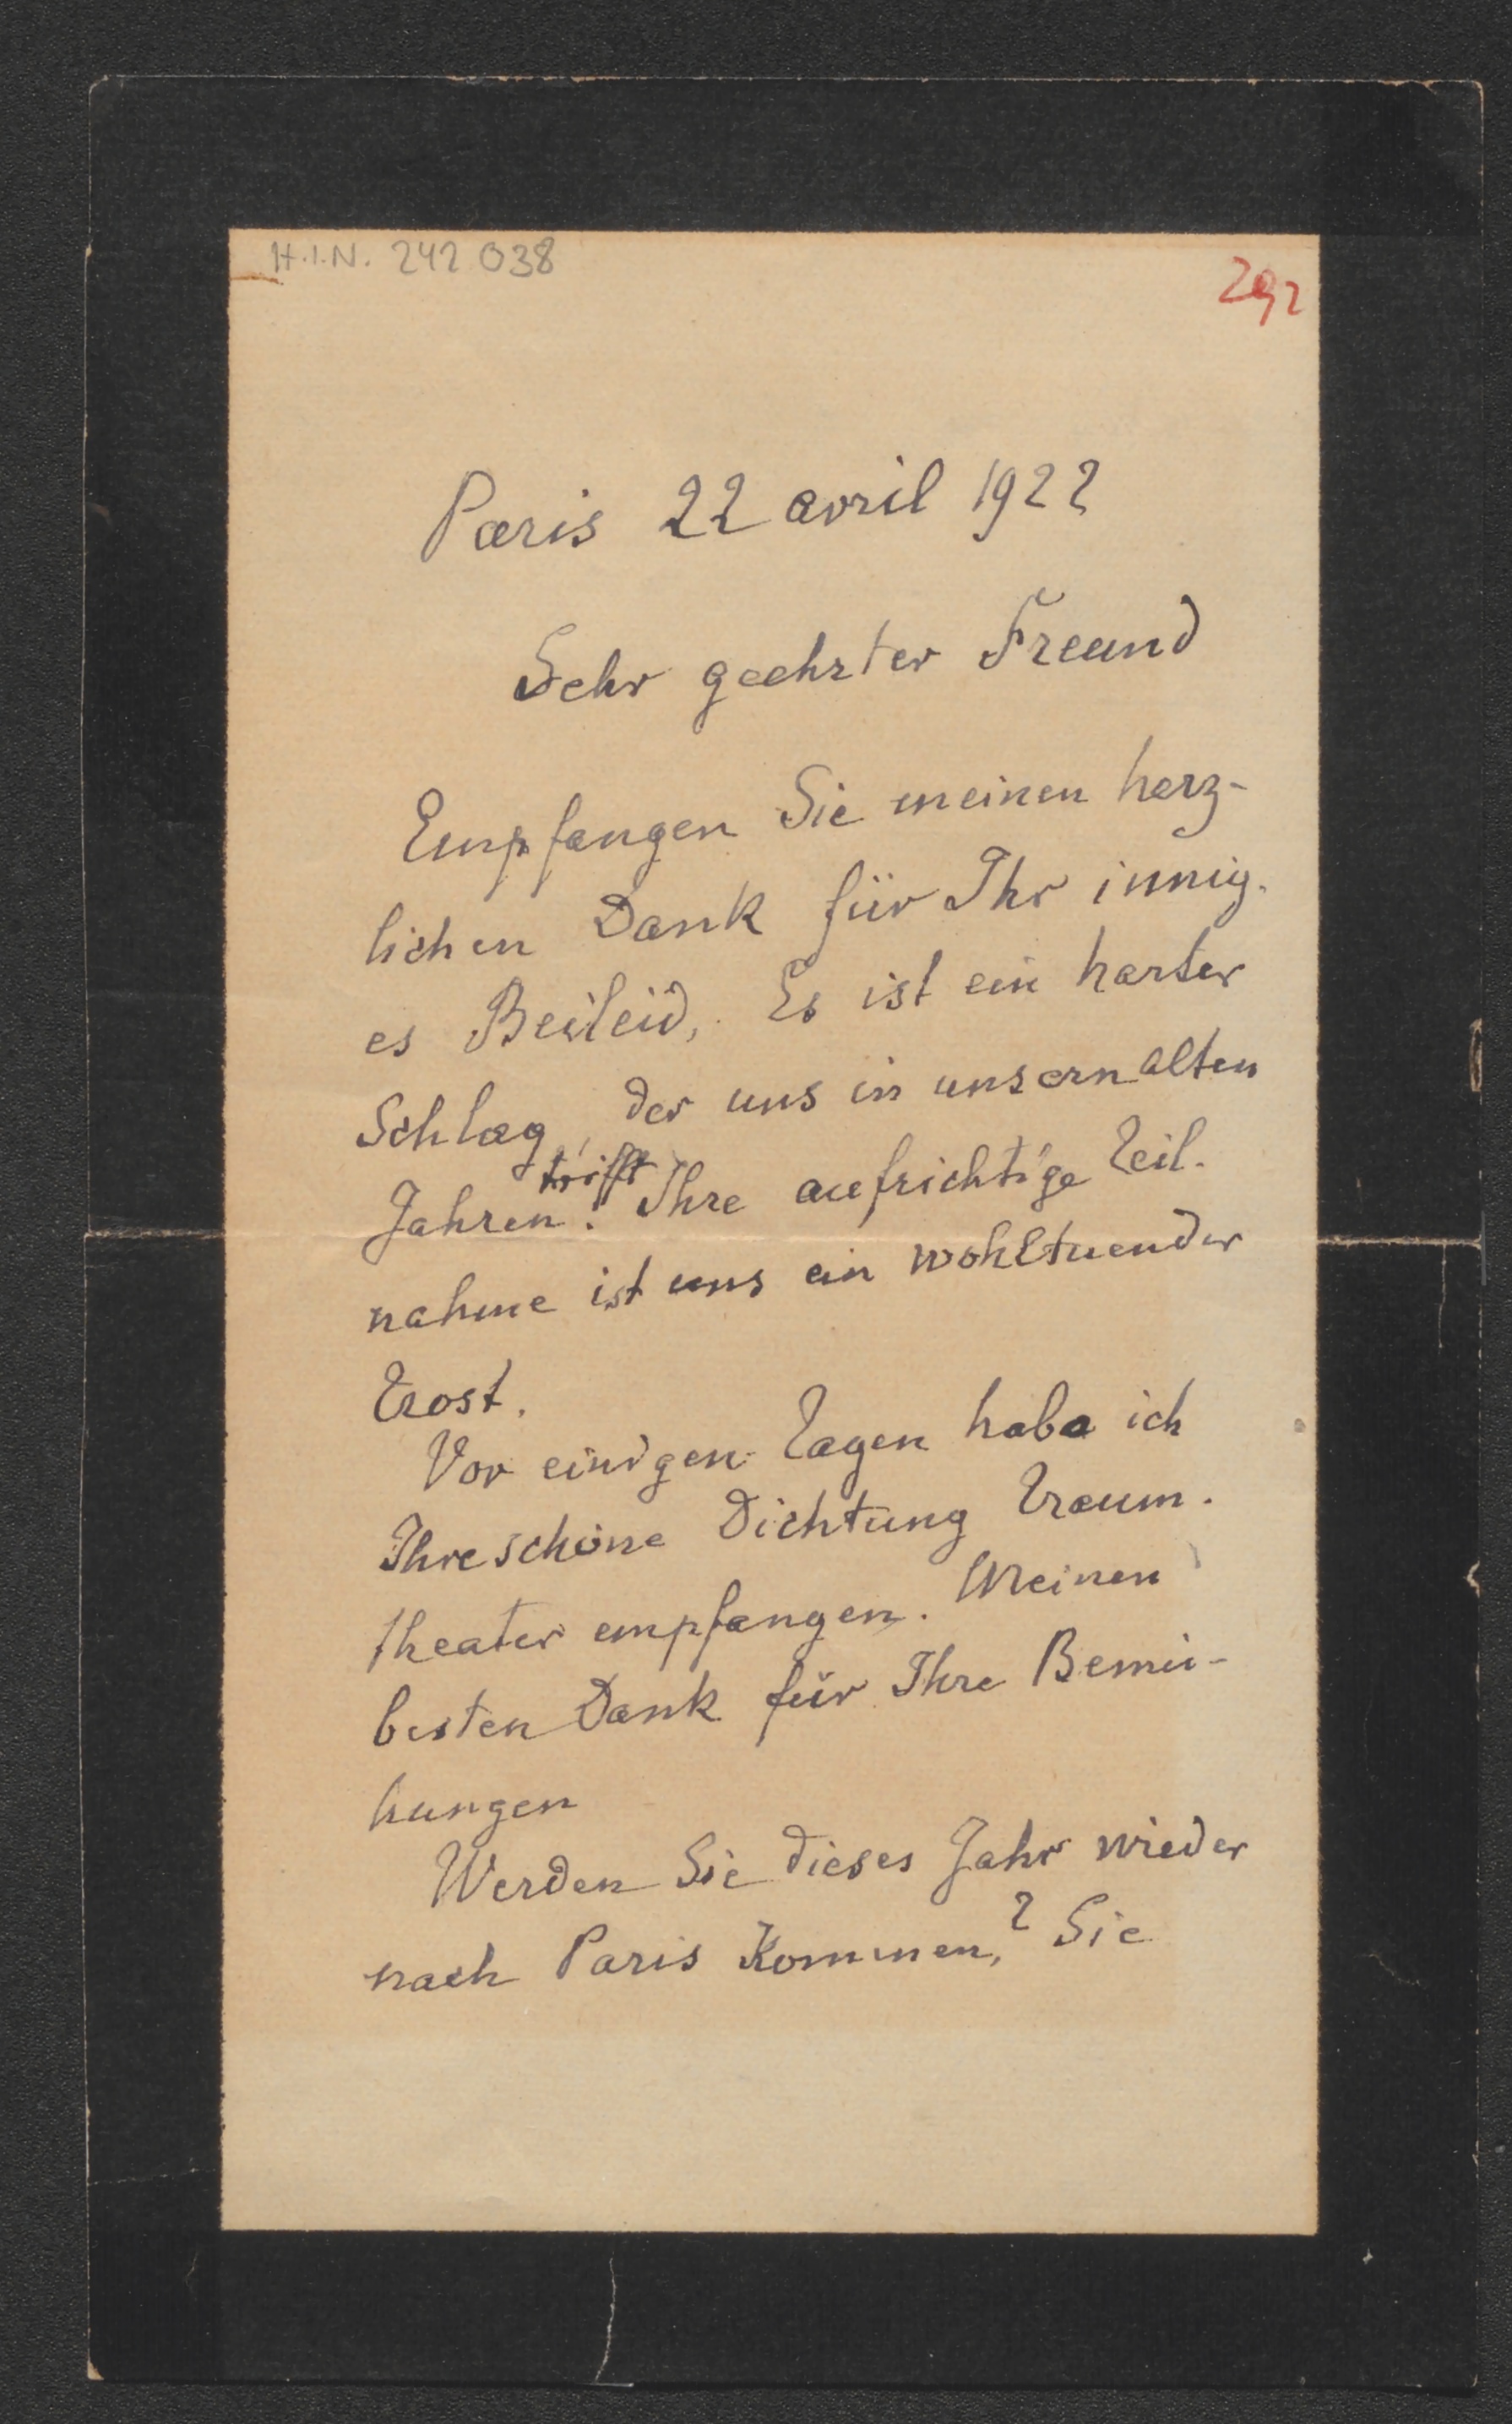 H.I.N. 242 038
292
Paris 22 avril 1922
Sehr geehrter Freund
Empfangen Sie meinen herz-
lichen Dank für Ihr innig-
es Beileid,. Es ist ein harter
Schlag, der uns in unsern alten
Jahren trifft! Ihre aufrichtige Teil-
nahme ist uns ein wohltuender
Trost.
Vor einigen Tagen habe ich
Ihre schöne Dichtung Traum-
theater empfangen. Meinen
besten Dank für Ihre Bemü-
hungen
Werden Sie dieses Jahr wieder
nach Paris Kommen,? Sie